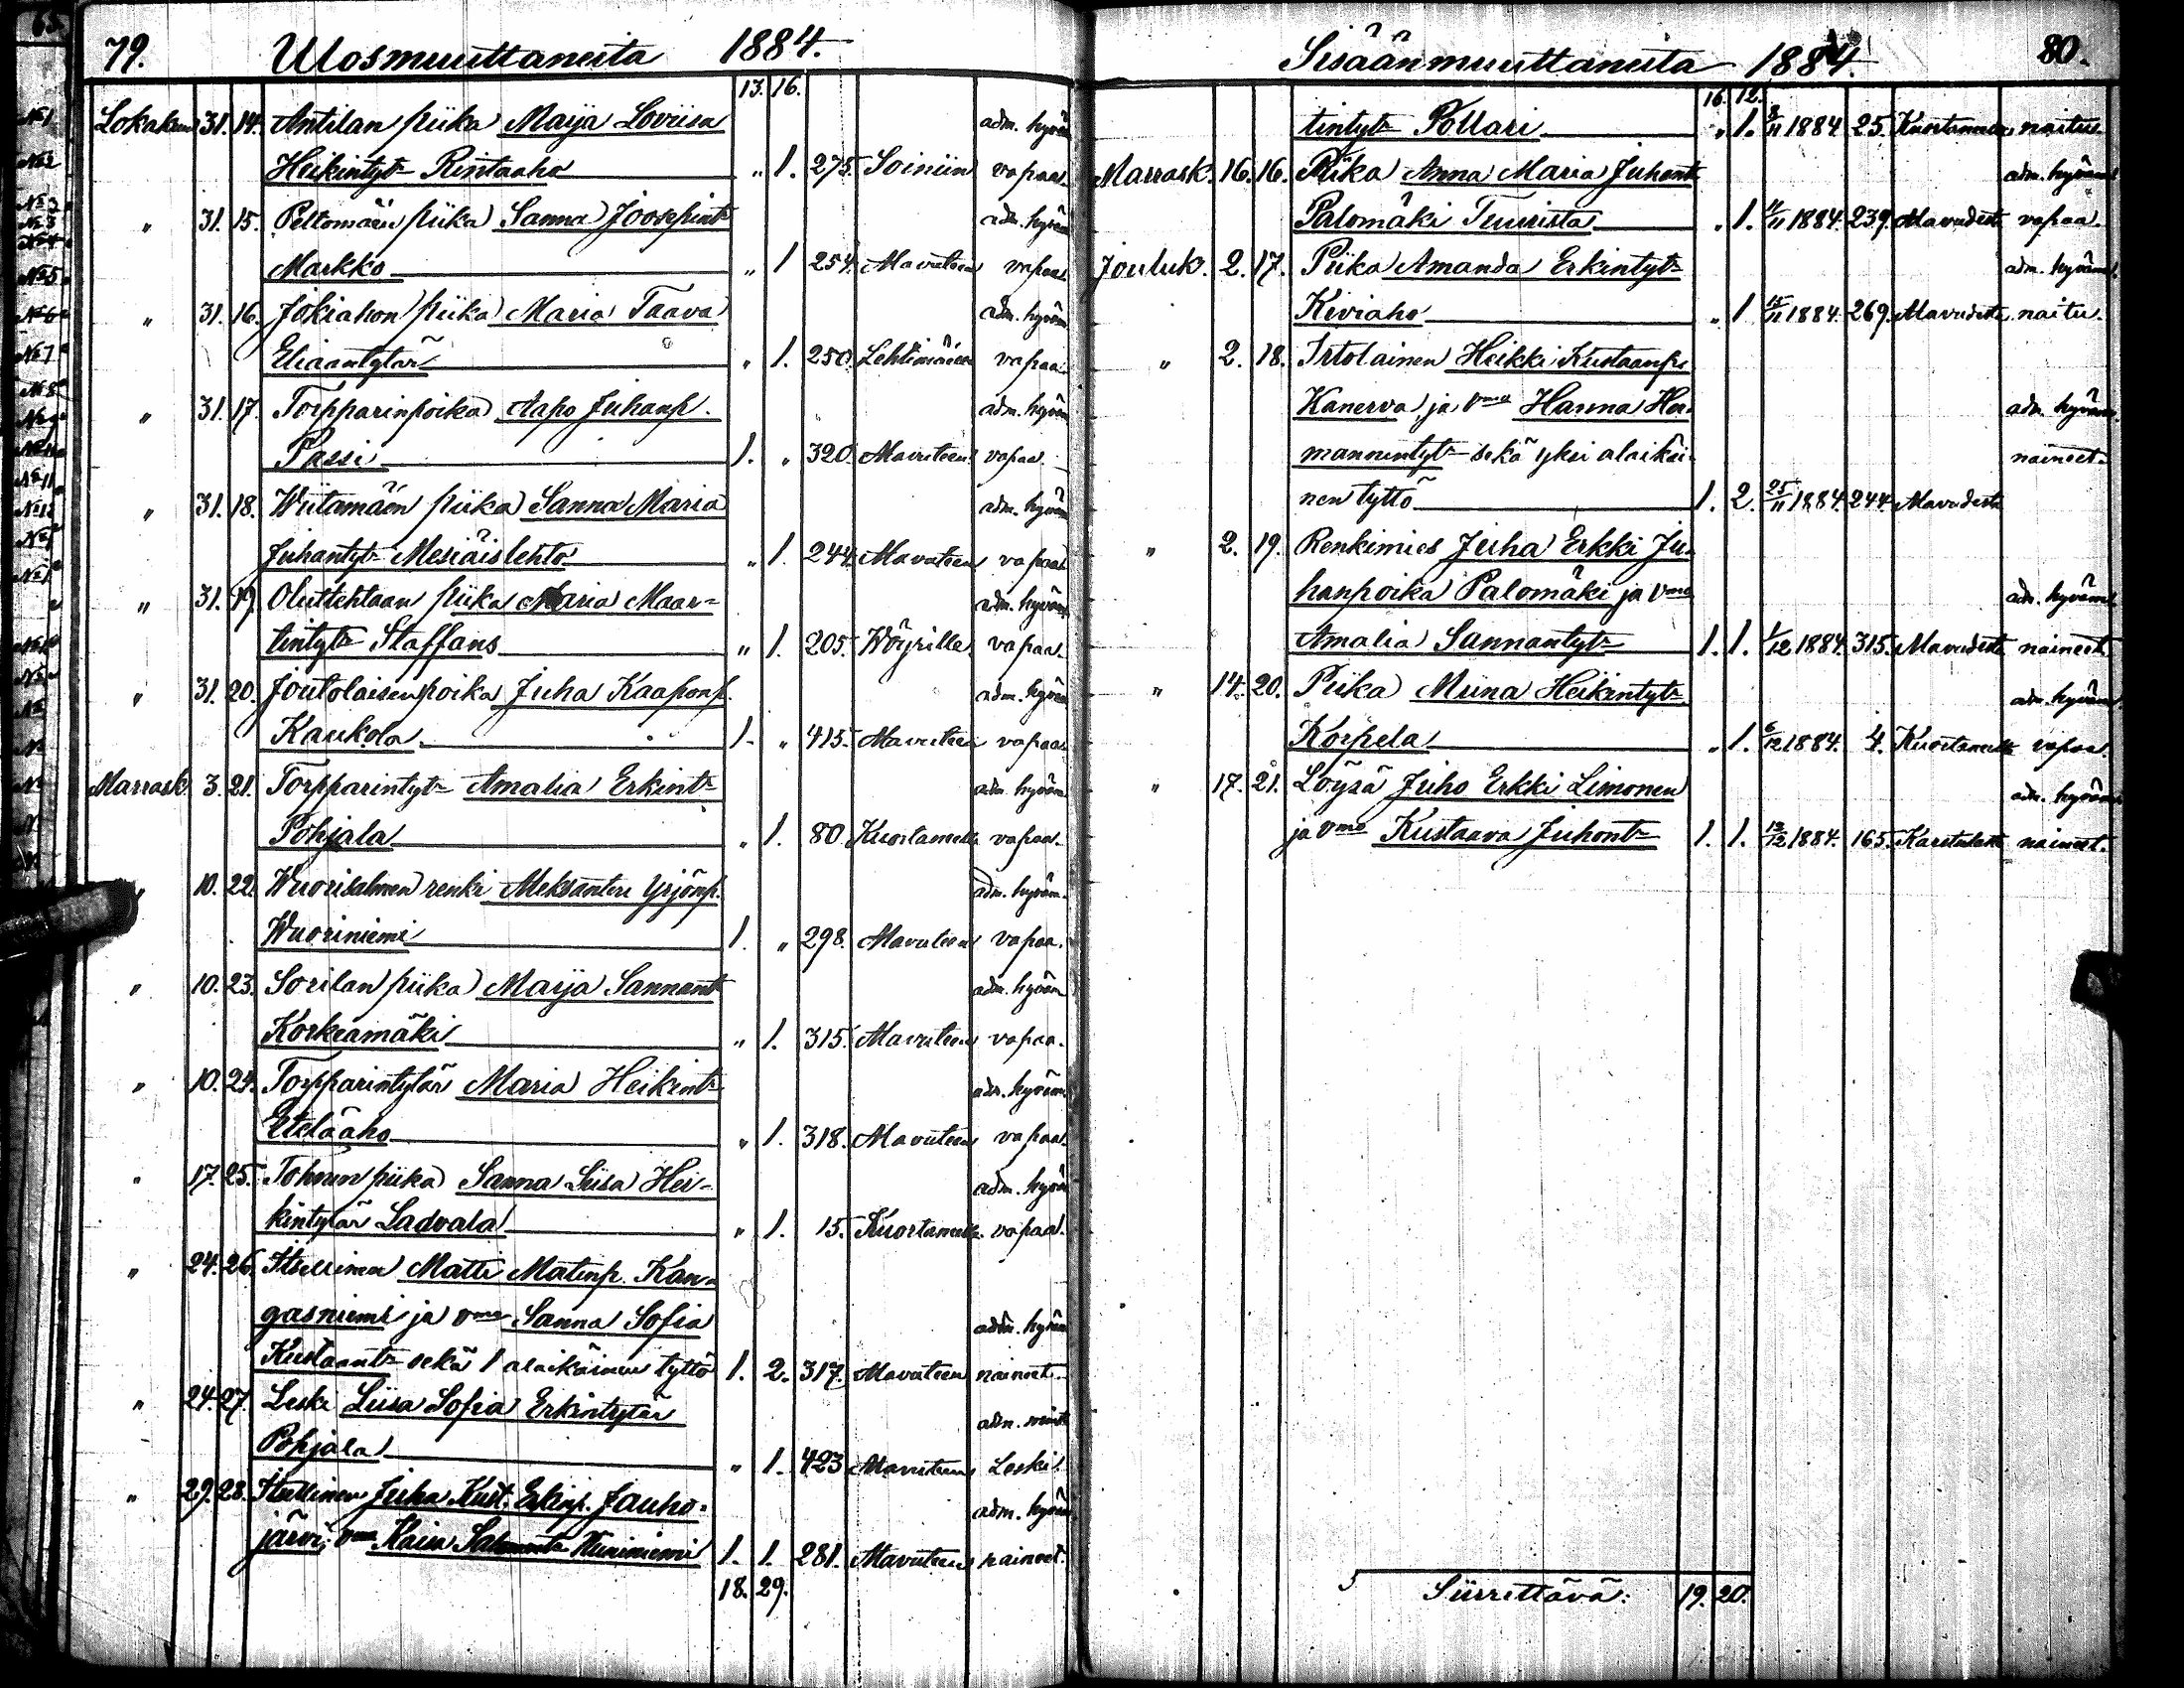 79. Ulosmuuttaneita 1884.
13. 16.
Lokakuu 31. 14. Antilan piika Maija Loviisa adm. hyväm
Heikintytr Rintaaho " 1. 275. Soiniin vapaa.
" 31. 15. Peltomäen piika Sanna Joosepintr adm. hyväm
Markko " 1 254. Alavuteen vapaa
" 31. 16. Jokiahon piika Maria Taava adm. hyväm
Eliaantytär " 1. 250. Lehtimäelle vapaa
" 31. 17. Torpparinpoika Aapo Juhanp. adm. hyväm
Passi 1. " 320. Alavuteen vapaa.
" 31. 18. Wiitamäen piika Sanna Maria adm. hyväm
Juhantytr Mesiäislehto " 1. 244. Alavuteen vapaa
" 31. 19. Oluttehtaan piika Maria Maar= adm. hyväm
tintytr Staffans " 1. 205. Wöyrille. vapaa.
" 31. 20. Joutolaisenpoika Juha Kaaponp. adm. hyväm
Kaukola 1. " 415. Alavuteen vapaa
Marrask. 3. 21. Torpparintytr Amalia Erkintr adm. hyväm
Pohjala " 1. 80. Kuortaneelle vapaa.
" 10. 22. Wuorisalmen renki Aleksanteri Yrjönp. adm. hyväm.
Wuoriniemi 1. " 298. Alavuteen vapaa.
" 10. 23. Sorilan piika Maija Sannantr adm. hyväm
Korkeamäki " 1. 315. Alavuteen vapaa.
" 10. 24. Torpparintytär Maria Heikintr adm. hyväm
Eteläaho " 1. 318. Alavuteen vapaa.
" 17. 25. piika Sanna Liisa Hei- adm. hyvä
kintytär Ladvala " 1. 15. Kuortaneelle. vapaa.
" 24. 26. Itsellinen Matti Matinp. Kan-
gasniemi ja vmo Sanna Sofia adm. hyväm
Kustaantr sekä 1 alaikäinen tyttö 1. 2. 317. Alavuteen naineet.
" 24. 27. Leski Liisa Sofia Erkintytär adm.
Pohjala " 1. 423 Alavuteen Leski
" 29. 28. Itsellinen Juha Kust. Erkinp. Jauho= adm. hyväm
järvi, vmo 1. 1. 281. Alavuteen naineet.
18. 29.
Sisäänmuuttaneita 1884. 80.
16. 12.
tintytr Pollari " 1. 8/11 1884 25. Kuortaneelta naitu.
Marrask. 16. 16. Piika Anna Maria Juhantr adm. hyväm
Palomäki Tuurista " 1. 11/11 1884. 239. Alavudesta vapaa.
Jouluk. 2. 17. Piika Amanda Erkintytr adm. hyväm.
Kiviaho " 1 15/11 1884. 269. Alavudesta naitu.
" 2. 18. Irtolainen Heikki Kustaanp.
Kanerva, ja vmo Hanna Her- adm. hyväm.
mannintytr sekä yksi alaikäi- naineet.
nen tyttö 1. 2. 25/11 1884. 244. Alavudesta
" 2. 19. Renkimies Juha Erkki Ju-
hanpoika Palomäki ja vmo adm. hyväm
Amalia Sannantytr 1. 1. 1/12 1884. 315. Alavudesta naineet.
" 14. 20. Piika Miina Heikintytr adm. hyväm
Korpela " 1. 6/12 1884. 4. Kuortaneelta vapaa.
" 17. 21. Löysä Juho Erkki Limonen adm. hyväm
ja vmo Kustaava Juhontr 1. 1. 13/12 1884. 165. Karstulasta naineet.
Siirrettävä: 19. 20.